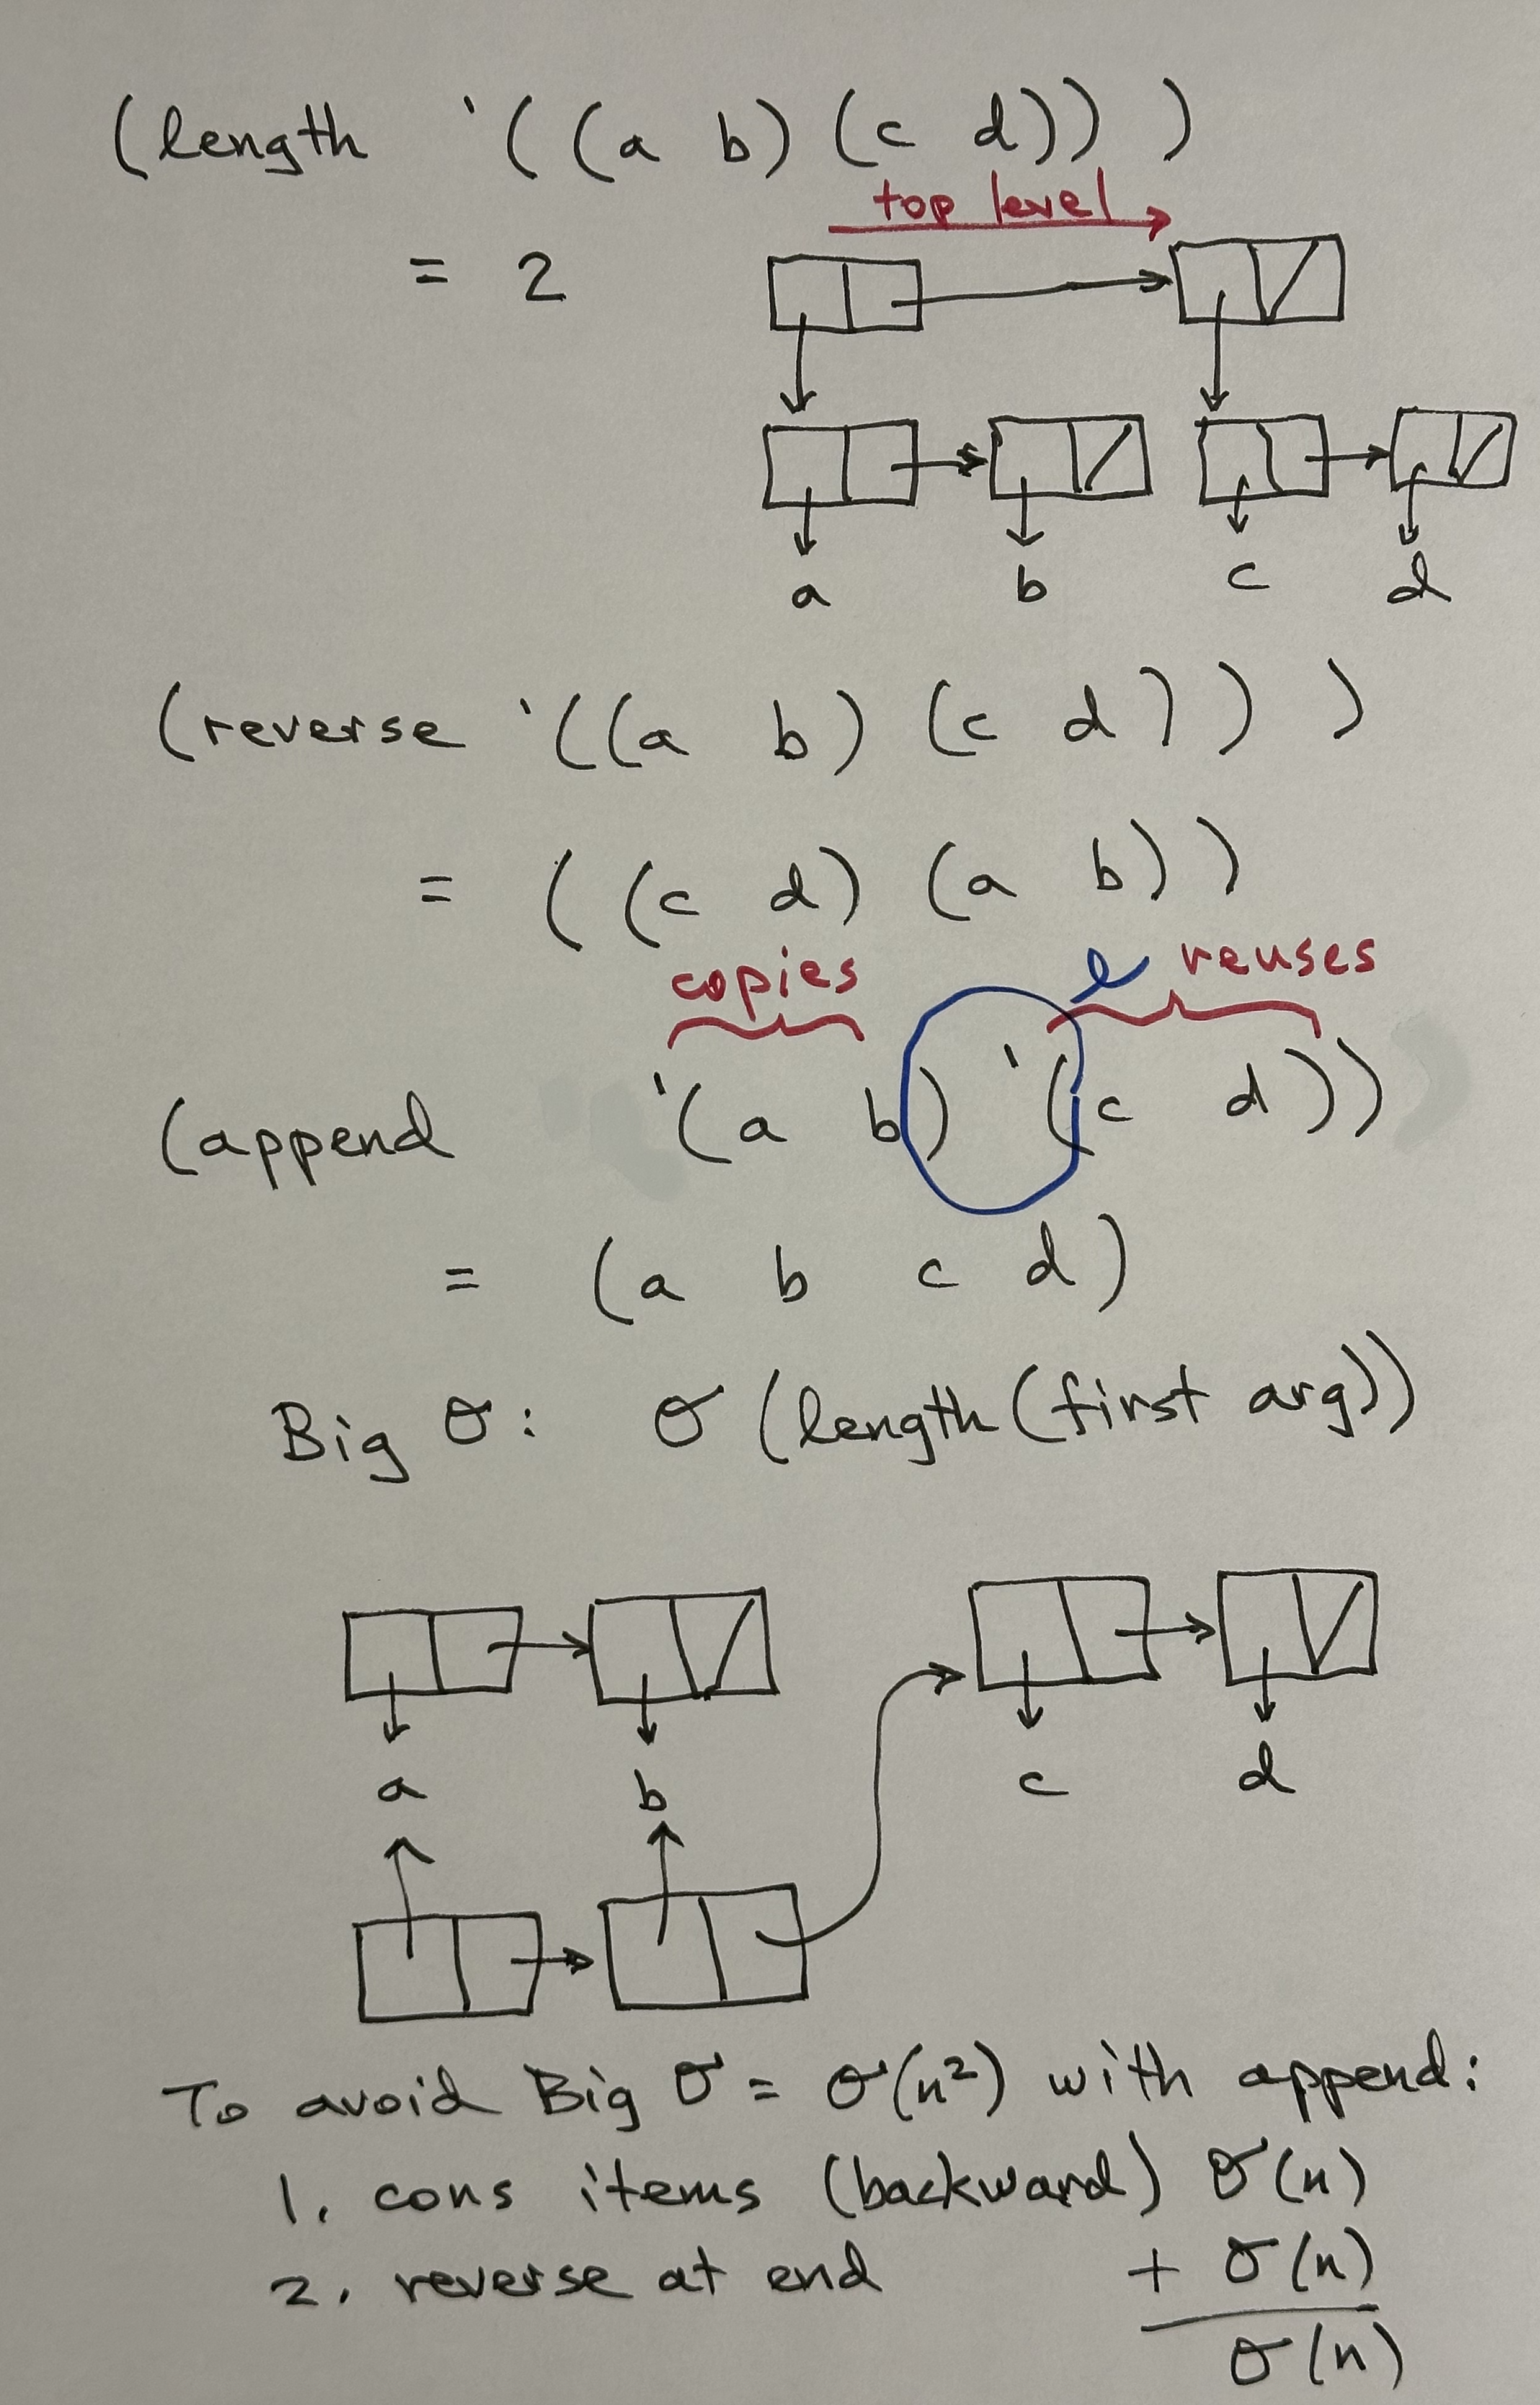 (length '((a b) (c d)) )
top level
= 2
a b c d
(reverse '((a b) (c d)) )
= ((c d) (a b))
copies reuses
(append '(a b) '(c d))
= (a b c d)
Big O: O (length (first arg))
a b c d
To avoid Big O = O(n²) with append:
1. cons items (backward) O(n)
2. reverse at end + O(n)
O(n)